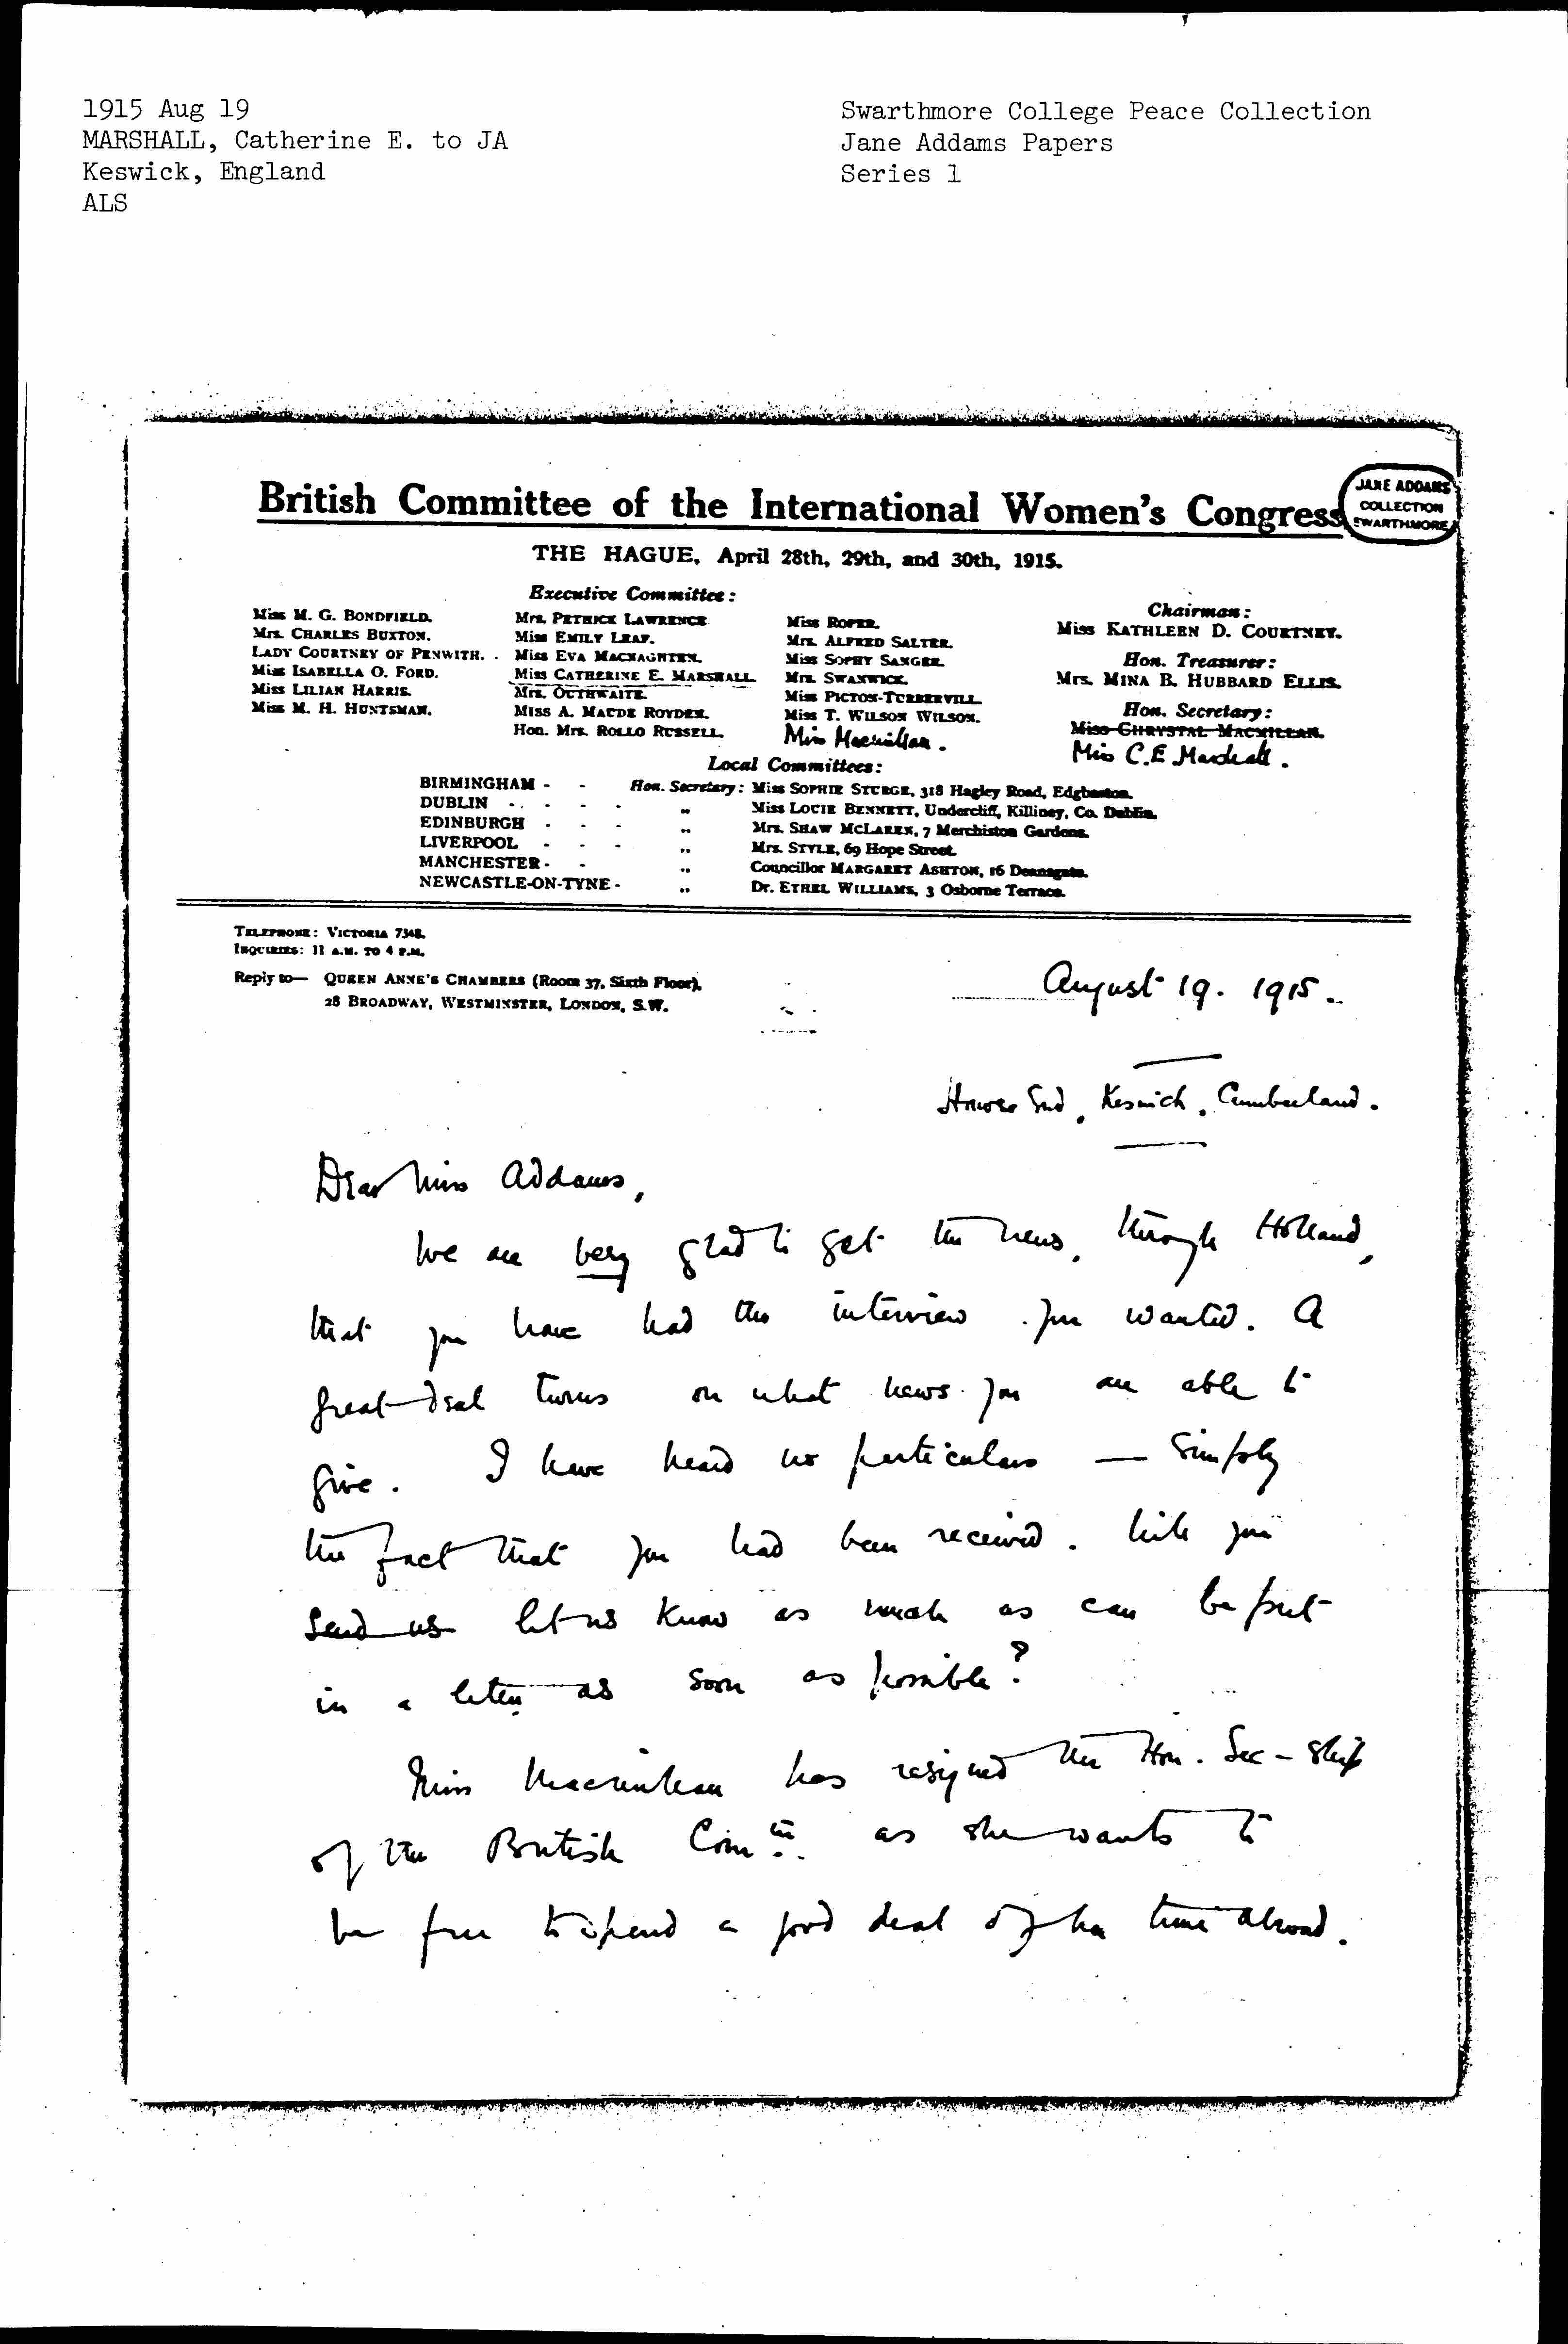 1915 Aug 19
MARSHALL, Catherine E. to JA
Keswick, England
ALS
Swarthmore College Peace Collection
Jane Addams Papers
Series 1
British Committee of the International Women's Congress
JANE ADDAMS
COLLECTION
SWARTHMORE
THE HAGUE, April 28th, 29th, and 30th, 1915.
Executive Committee:
Miss M. G. BONDFIELD.
Mrs. CHARLES BUXTON.
LADY COURTNEY OF PENWITH.
Miss ISABELLA O. FORD.
Miss LILIAN HARRIS.
Miss M. H. HUNTSMAN.
Mrs. PETHICK LAWRENCE
Miss EMILY LEAF.
Miss EVA MACNAGHTEN.
Miss CATHERINE E. MARSHALL.
Mrs. OUTHWAITE.
MISS A. MAUDE ROYDEN.
Hon. Mrs. ROLLO RUSSELL.
Miss ROPER.
Mrs. ALFRED SALTER.
Miss SOPHY SANGER.
Mrs. SWANWICK.
Miss PICTON-TURBERVILL.
Miss T. WILSON WILSON.
Miss Macmillan.
Chairman:
Miss KATHLEEN D. COURTNEY.
Hon. Treasurer:
Mrs. MINA B. HUBBARD ELLIS.
Hon. Secretary:
Miss CHRYSTAL MACMILLAN.
Miss C.E. Marshall.
Local Committees:
BIRMINGHAM - - Hon. Secretary: Miss SOPHIE STURGE, 318 Hagley Road, Edgbaston.
DUBLIN - - - - „ Miss LOUIE BENNETT, Undercliff, Killiney, Co. Dublin.
EDINBURGH - - - „ Mrs. SHAW MCLAREN, 7 Merchiston Gardens.
LIVERPOOL - - - „ Mrs. STYLE, 69 Hope Street.
MANCHESTER - - „ Councillor MARGARET ASHTON, 16 Deansgate.
NEWCASTLE-ON-TYNE - „ Dr. ETHEL WILLIAMS, 3 Osborne Terrace.
TELEPHONE: VICTORIA 7348.
INQUIRIES: 11 A.M. TO 4 P.M.
Reply to— QUEEN ANNE'S CHAMBERS (Room 37, Sixth Floor),
28 BROADWAY, WESTMINSTER, LONDON, S.W.
August 19. 1915.
Hawse End, Keswick, Cumberland.
Dear Miss Addams,
We are very glad to get the news, through Holland,
that you have had the interview you wanted. A
great deal turns on what news you are able to
give. I have heard no particulars — simply
the fact that you had been received. Will you
send us let us know as much as can be put
in a letter as soon as possible?
Miss Macmillan has resigned the Hon. Sec-ship
of the British Comtee. as she wants to
be free to spend a good deal of her time abroad.